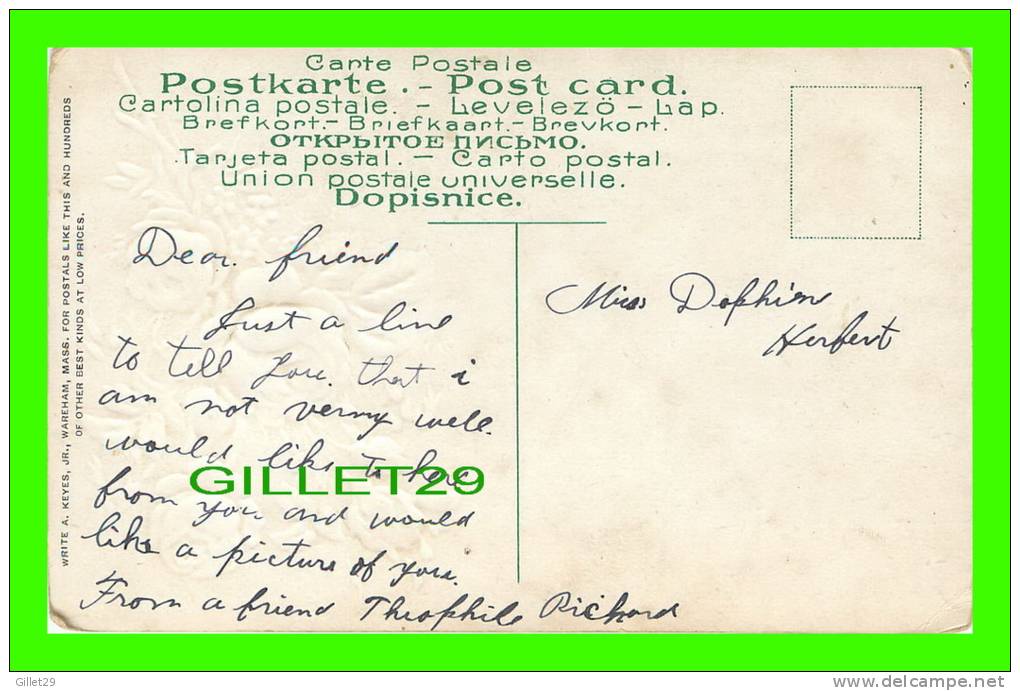 Carte Postale
Postkarte . - Post card.
Cartolina postale. - Levelezö - Lap.
Brefkort.- Briefkaart.- Brevkort.
ОТКРЫТОЕ ПИСЬМО.
Tarjeta postal. - Carto postal.
Union postale universelle.
Dopisnice.
WRITE A. KEYES, JR., WAREHAM, MASS. FOR POSTALS LIKE THIS AND HUNDREDS
OF OTHER BEST KINDS AT LOW PRICES.
Dear. friend
Just a line
to tell you. that i
am not verry well.
would like to hear
from you. and would
like a picture of you.
From a friend Theophile Richard
Miss Dophien
Herbert
GILLET29
Gillet29
www.delcampe.net